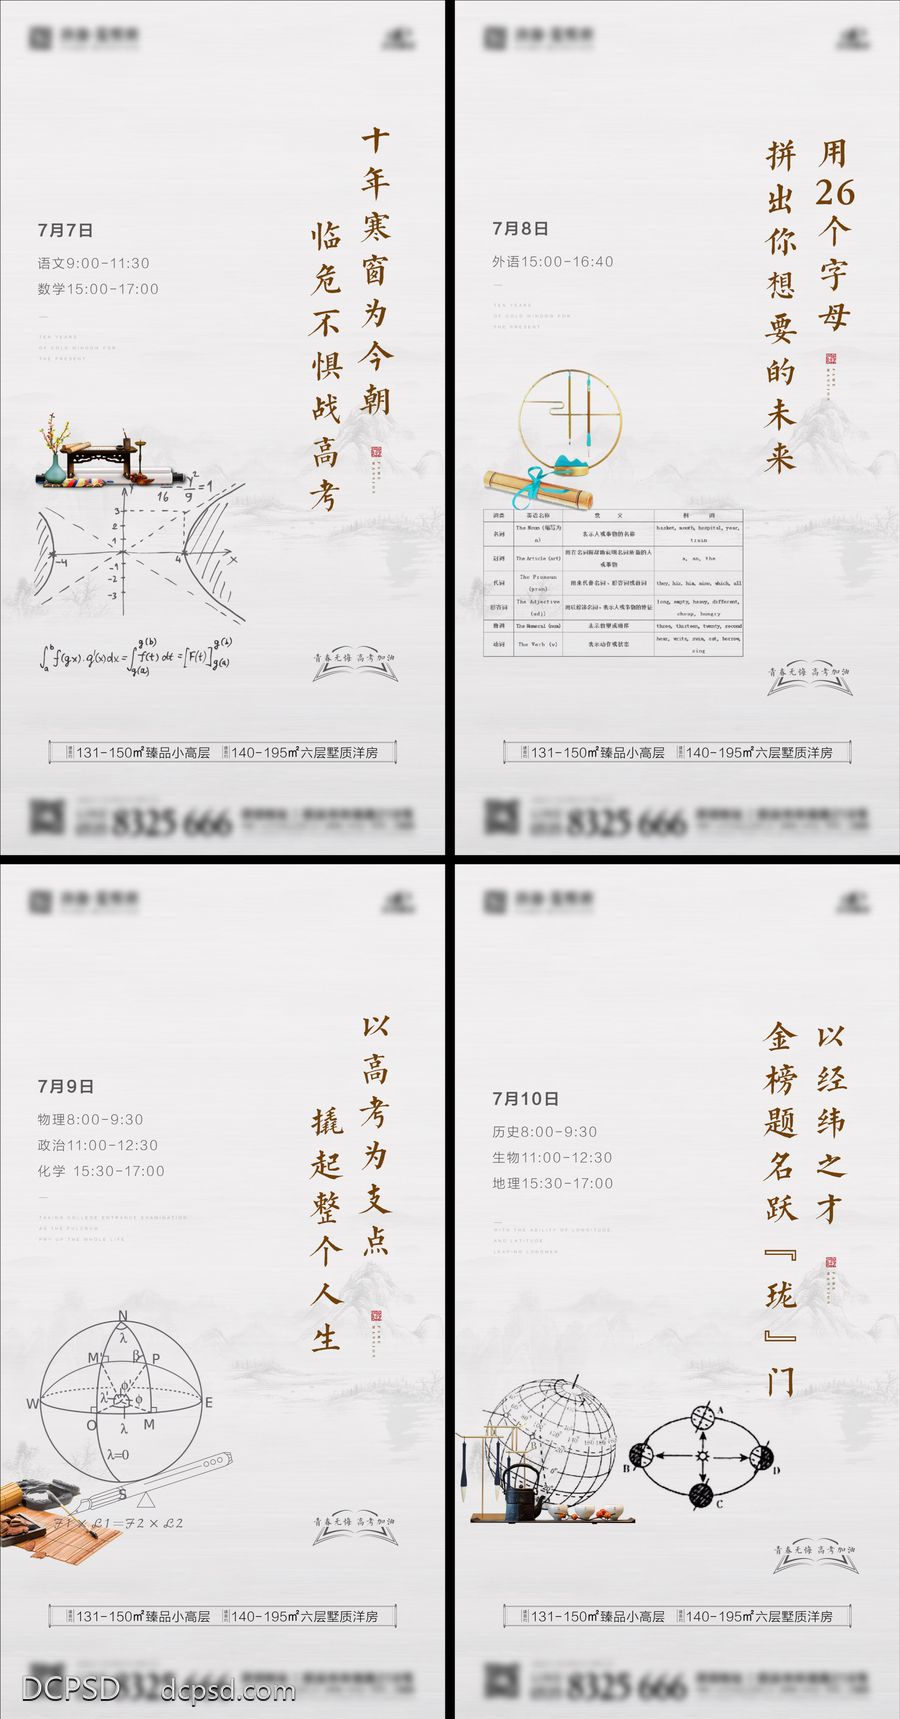 十年寒窗为今朝
临危不惧战高考
7月7日
语文9:00-11:30
数学15:00-17:00
TEN YEARS
OF COLD WINDOW FOR
THE PRESENT
青春无悔 高考加油
131-150㎡臻品小高层
140-195㎡六层墅质洋房
8325 666
用26个字母
拼出你想要的未来
7月8日
外语15:00-16:40
TEN YEARS
OF COLD WINDOW FOR
THE PRESENT
词类 英语名称 意 义 例 词
名词 The Noun (缩写为n) 表示人或事物的名称 basket, mouth, hospital, year, train
冠词 The Article (art) a, an, the
代词 The Pronoun (pron) 用来代替名词、形容词或数词 they, his, him, mine, which, all
形容词 The Adjective (adj) long, empty, heavy, different, cheap, hungry
数词 The Numeral (num) 表示数量或顺序 three, thirteen, twenty, second
动词 The Verb (v) 表示动作或状态 hear, write, swim, eat, borrow, sing
青春无悔 高考加油
131-150㎡臻品小高层
140-195㎡六层墅质洋房
8325 666
以高考为支点
撬起整个人生
7月9日
物理8:00-9:30
政治11:00-12:30
化学 15:30-17:00
TAKING COLLEGE ENTRANCE EXAMINATION
AS THE FULCRUM
PRY UP THE WHOLE LIFE
N
λ
M' β P
W E
O M
λ
λ=0
S
F1×L1=F2×L2
青春无悔 高考加油
131-150㎡臻品小高层
140-195㎡六层墅质洋房
DCPSD dcpsd.com
以经纬之才
金榜题名跃『珑』门
7月10日
历史8:00-9:30
生物11:00-12:30
地理15:30-17:00
WITH THE ABILITY OF LONGITUDE
AND LATITUDE
LEAPING LONGMEN
A
B
D
C
青春无悔 高考加油
131-150㎡臻品小高层
140-195㎡六层墅质洋房
8325 666